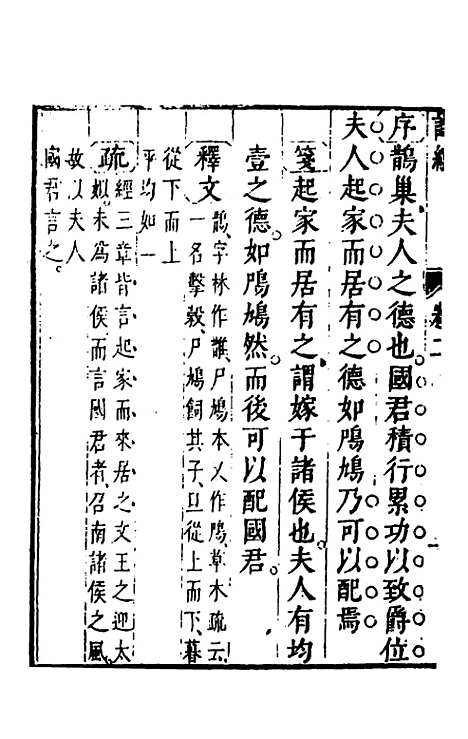 詩經 卷二 一
序鵲巢夫人之德也國君積行累功以致爵位
夫人起家而居有之德如鳲鳩乃可以配焉
箋起家而居有之謂嫁于諸侯也夫人有均
壹之德如鳲鳩然而後可以配國君
釋文鵲字林作䧿尸鳩本又作鳲草木疏云
一名擊穀尸鳩飼其子旦從上而下暮
從下而上
平均如一
疏經三章皆言起家而來居之文王之迎太
姒未為諸侯而言國君者召南諸侯之風
故以夫人
國君言之